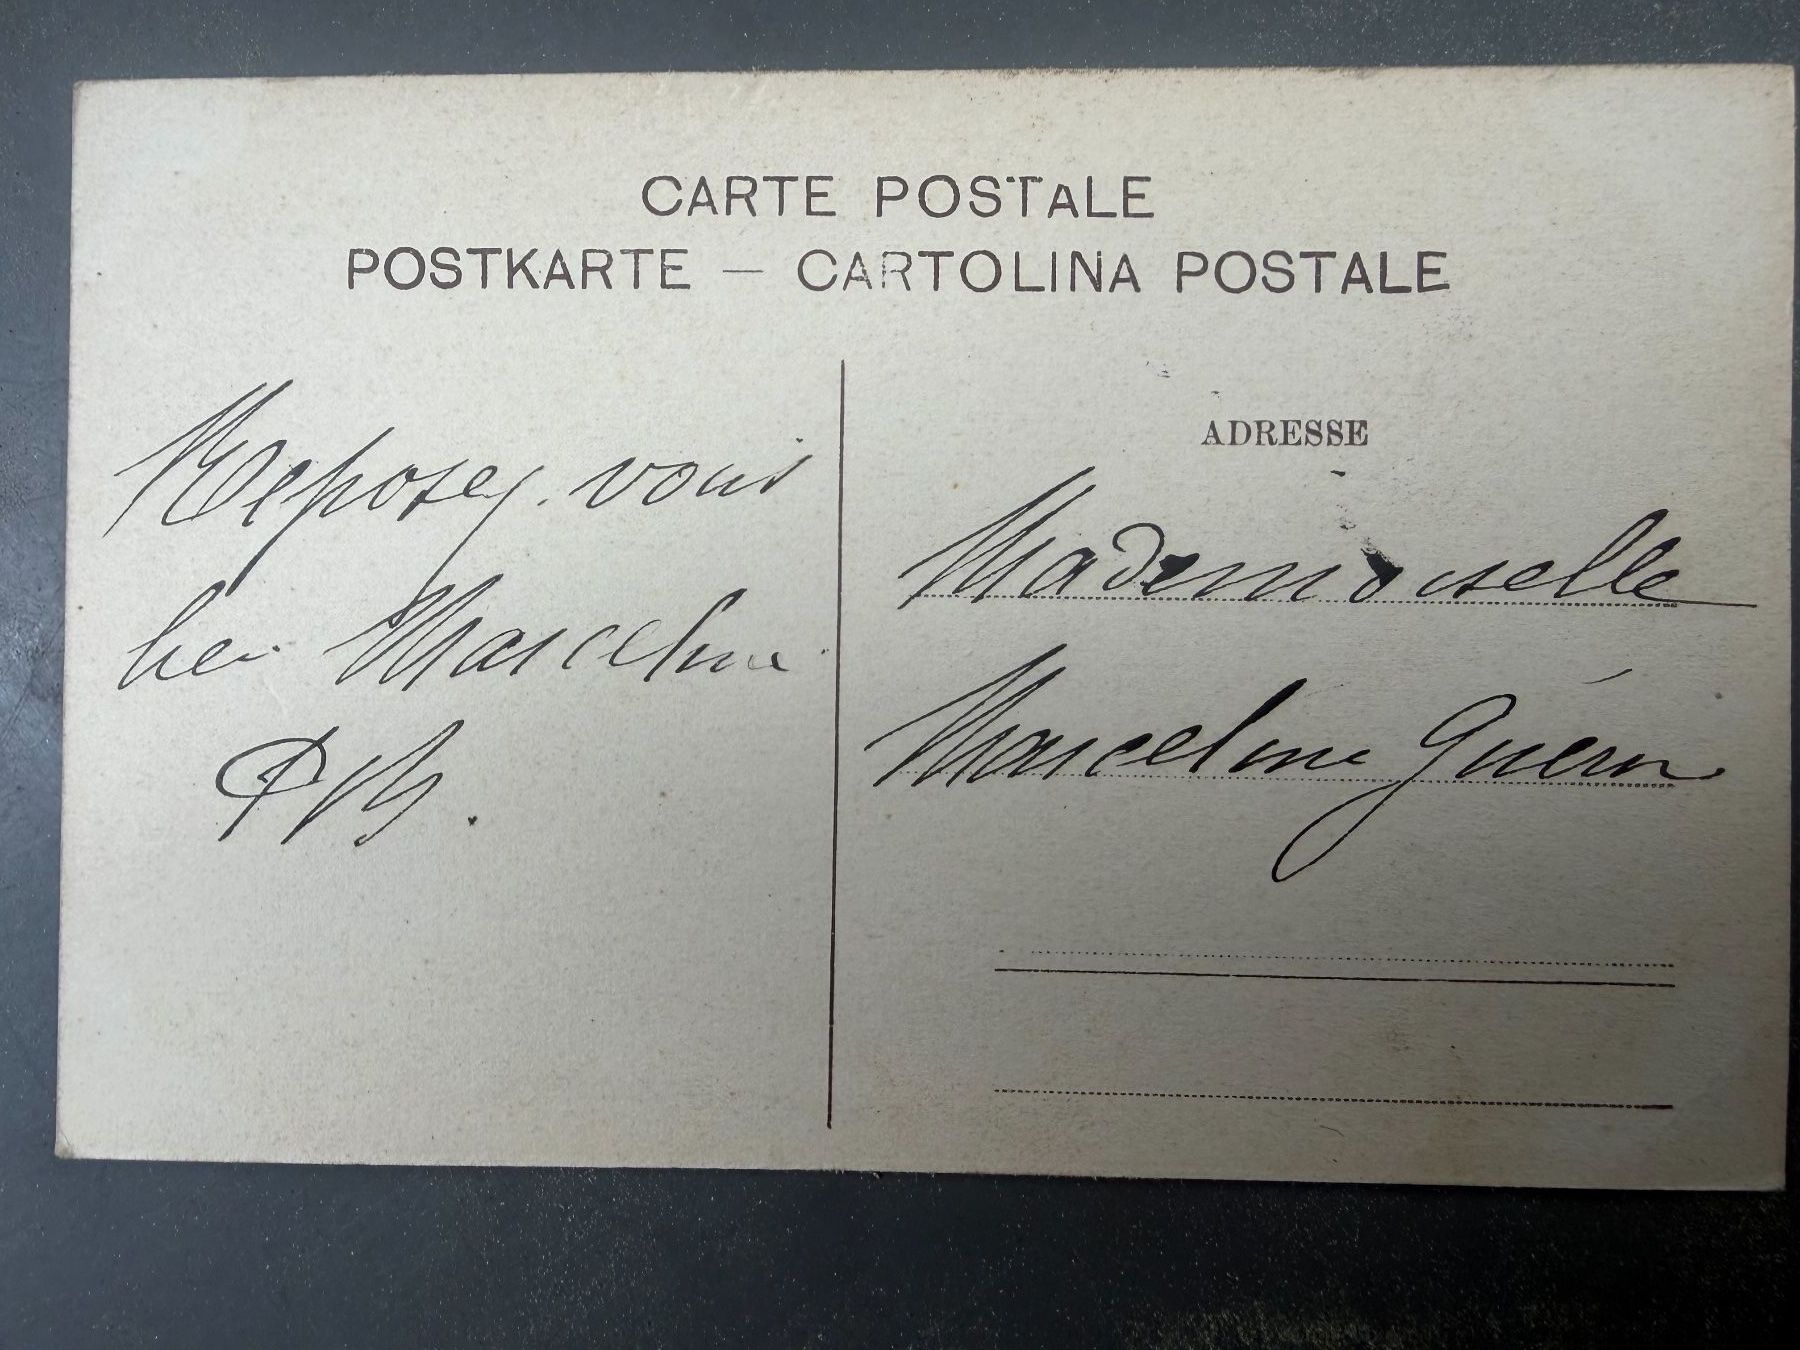 CARTE POSTALE
POSTKARTE — CARTOLINA POSTALE
Reposez vous
bien Marceline
ADRESSE
Mademoiselle
Marceline Guérin